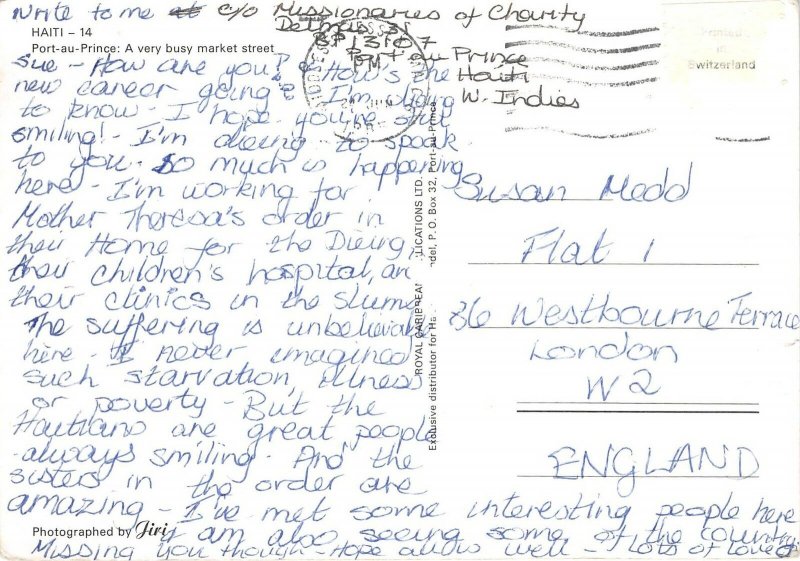 Write to me at c/o Missionaries of Charity
Delmas 31
BP 13107
Port au Prince
Haiti
W. Indies
HAITI – 14
Port-au-Prince: A very busy market street
Printed in
Switzerland
Sue - How are you? How's the
new career going? I'm dying
to know - I hope you're still
smiling! - I'm dieing to speak
to you. So much is happening
here - I'm working for
Mother Theresa's order in
their Home for the Dieing,
their children's hospital, an
their clinics in the slums
The suffering is unbelievable
here - I never imagined
such starvation, illness
or poverty - But the
Haitians are great people
always smiling. And the
sisters in the order are
amazing - I've met some interesting people here
I am also seeing some of the country
Missing you though - Hope all's well - lots of love
Photographed by Jiri
ROYAL CARIBBEAN
LICATIONS LTD.
Exclusive distributor for
ndel, P.O. Box 32, Port-au-Prince
Susan Medd
Flat 1
36 Westbourne Terrace
London
W2
ENGLAND